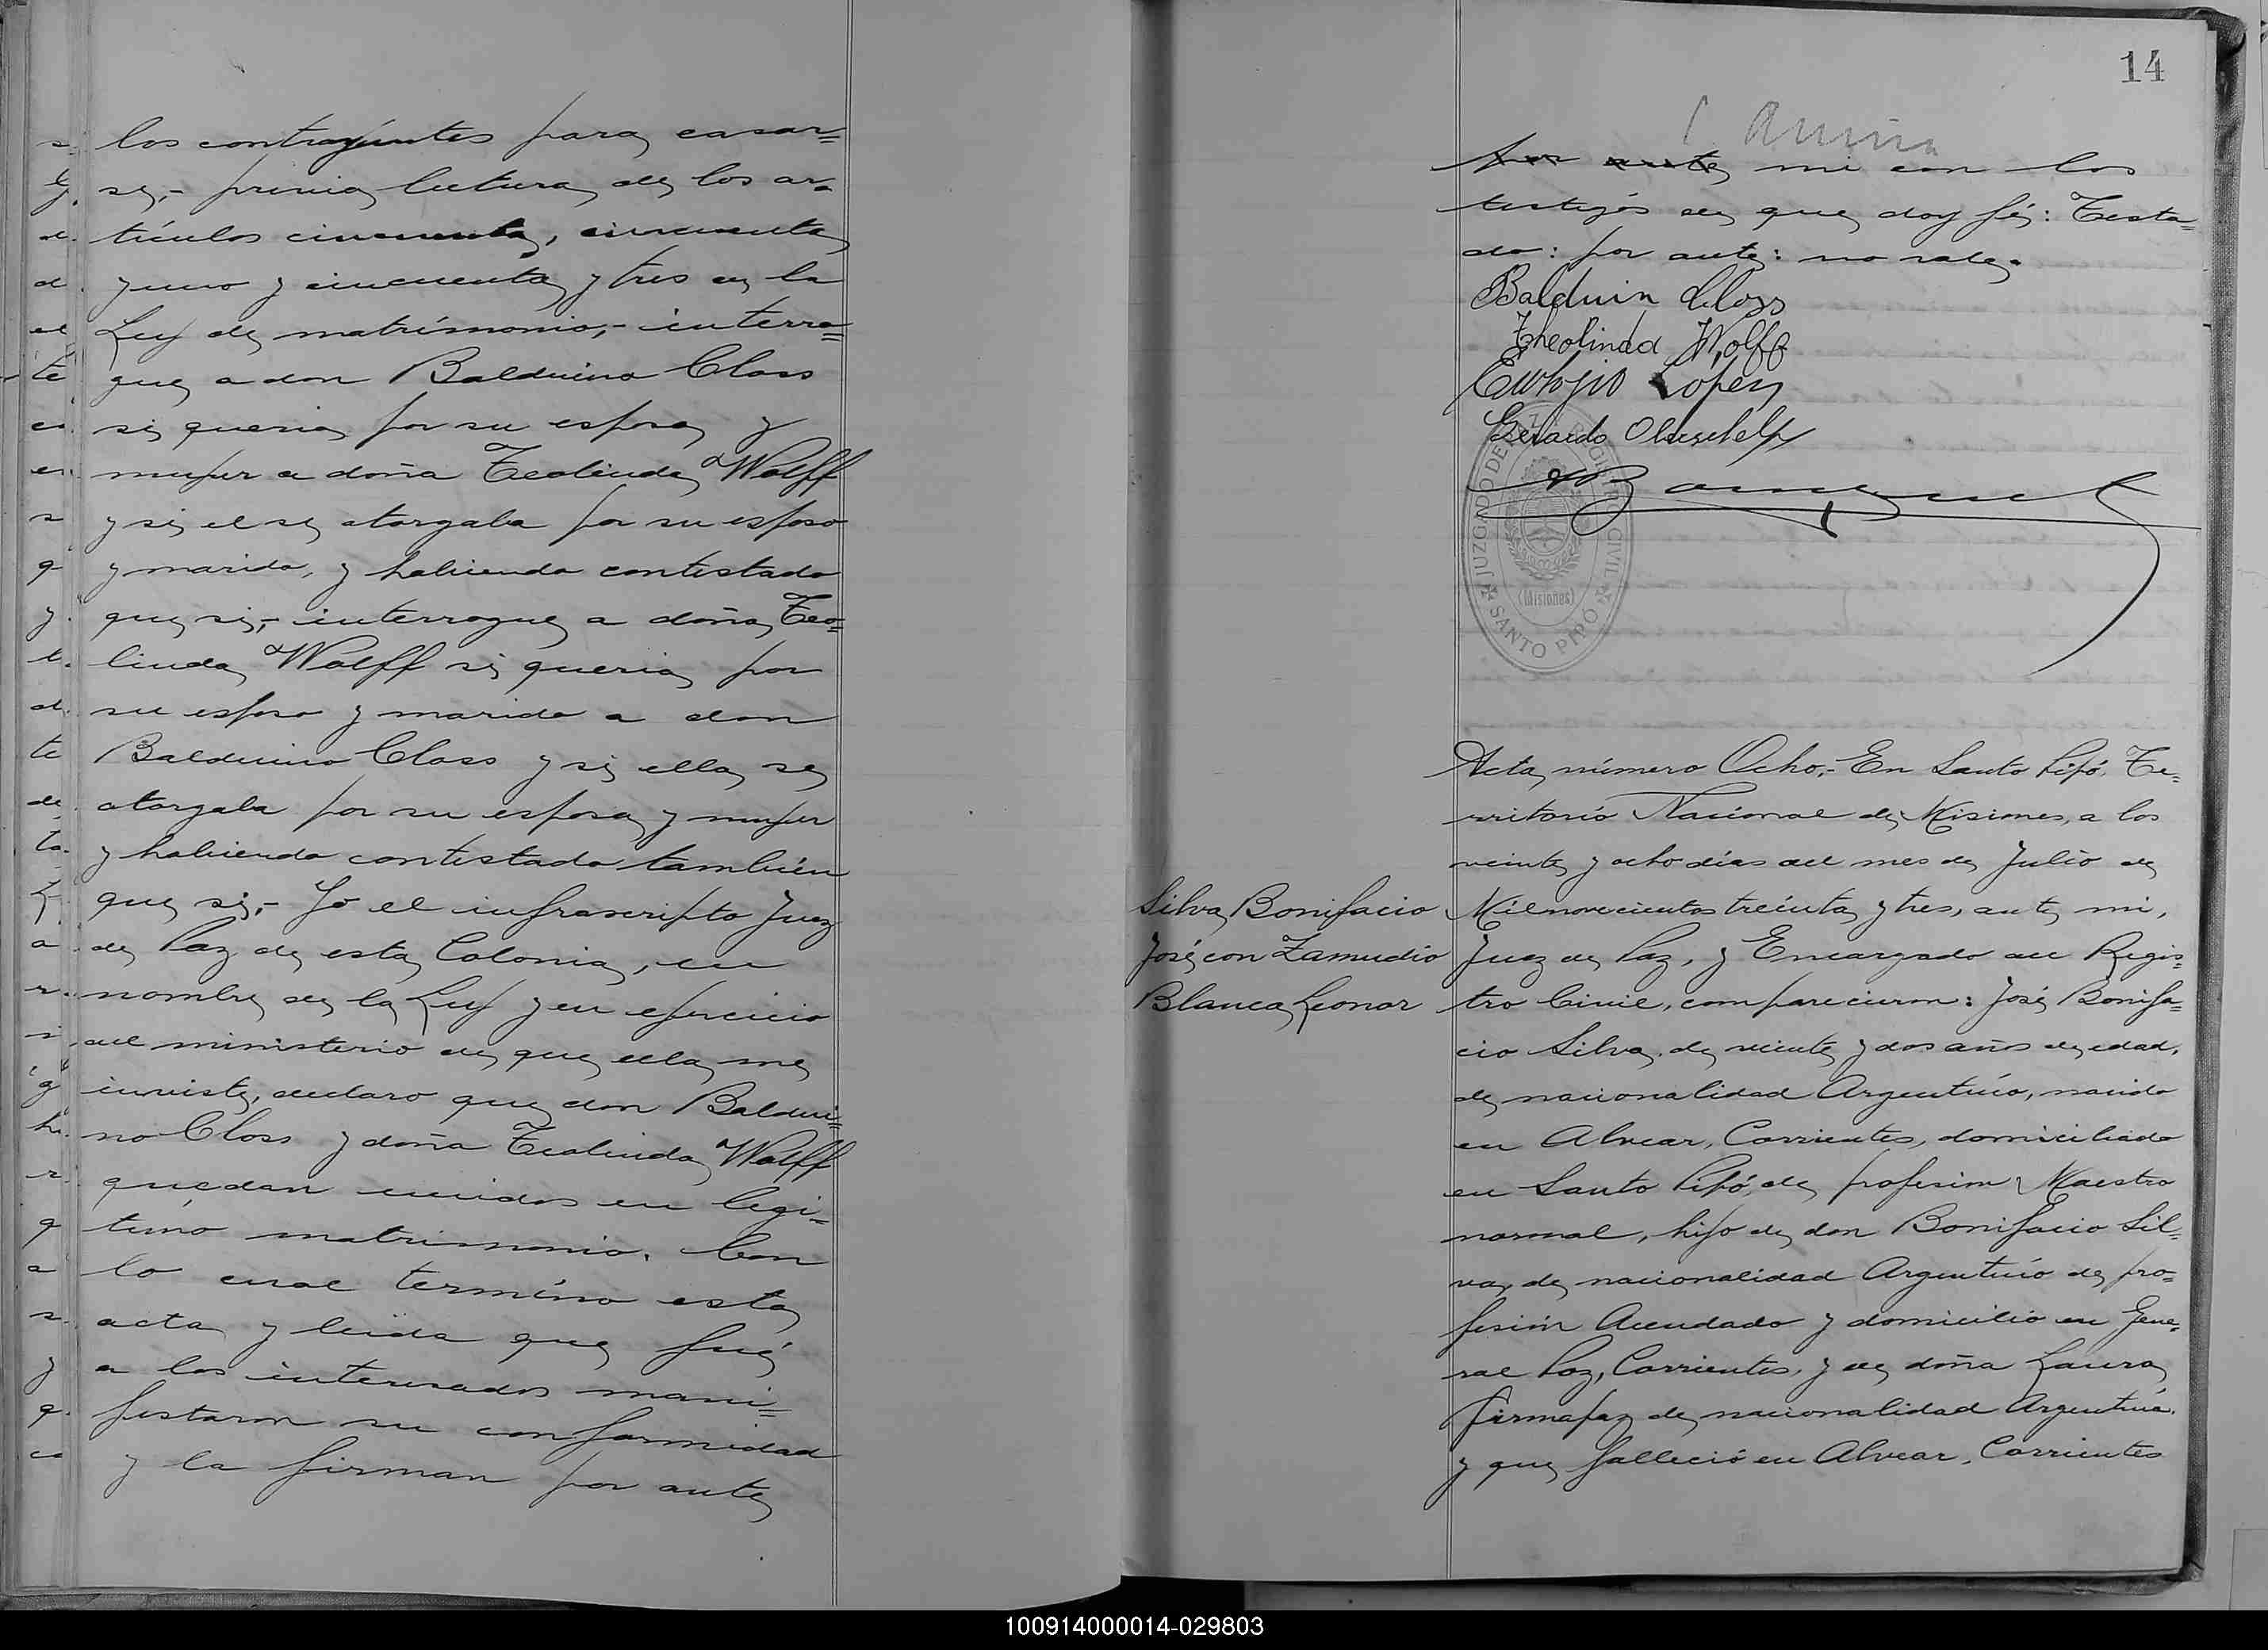 los contrayentes para casar=
se,- previa lectura de los ar=
tículos cincuenta, cincuenta
y uno y cincuenta y tres de la
Ley de matrímonio,- interro=
gue a don Balduino Closs
si queria por su esposa y
mujer a doña Teolinda Wolff
y si el se otorgaba por su esposo
y marido, y habiendo contestado
que si,- interrogue a doña Teo=
linda Wolff si queria por
su esposo y marido a don
Balduino Closs y si ella se
otorgaba por su esposa y mujer
y habiendo contestado también
que si,- Yo el infrascripto Juez
de Paz de esta Colonia, en
nombre de la Ley y en ejercicio
del ministerio de que ella me
inviste, declaro que don Baldui=
no Closs y doña Teolinda Wolff
quedan unidos en legi=
timo matrimonio. Con
lo cual término esta
acta y leida que fué
a los interesados mani=
festaron su conformidad
y la firman por ante
14
por ante mi con los
testigos de que doy fé: Testa=
do: por ante: no vale.
Balduin Closs
Theolinda Wolff
Eulogio Lopez
Gerardo
JUZGADO DE PAZ Y REGISTRO CIVIL
(Misiones)
SANTO PIPÓ
Silva Bonifacio
José con Zamudio
Blanca Leonor
Acta número Ocho.- En Santo Pipó, Te=
rritorio Nacional de Misiones, a los
veinte y ocho días del mes de Julio de
Milnovecientos treinta y tres, ante mi,
Juez de Paz, y Encargado del Regis=
tro Civil, comparecieron: José Bonifa=
cio Silva, de veinte y dos años de edad,
de nacionalidad Argentino, nacido
en Alvear, Corrientes, domiciliado
en Santo Pipó, de profesion Maestro
normal, hijo de don Bonifacio Sil=
va, de nacionalidad Argentino de pro=
fesión Acendado y domicilio en Gene=
ral Paz, Corrientes, y de doña Laura
firmapaz de nacionalidad Argentina.
y que falleció en Alvear, Corrientes
100914000014-029803